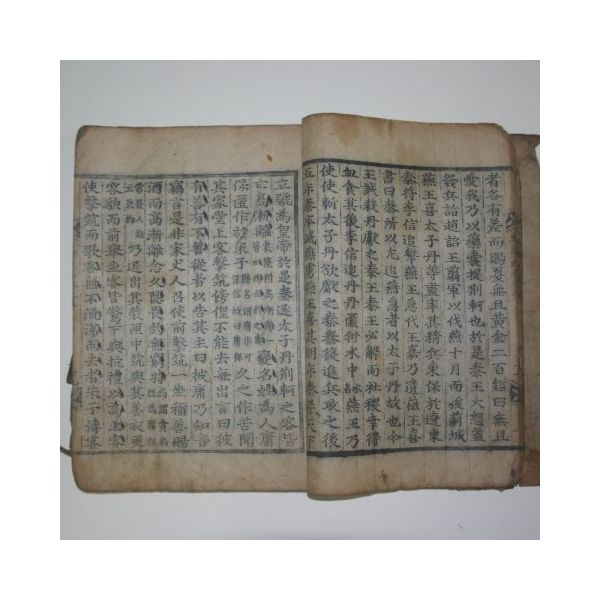 者各有差而賜夏無且黃金二百鎰曰無且
愛我乃以藥囊提荆軻也於是秦王大怒益
發兵詣趙詔王翦軍以伐燕十月而拔薊城
燕王喜太子丹等盡率其精兵東保於遼東
秦將李信追擊燕王急代王嘉乃遺燕王喜
書曰秦所以尤追燕急者以太子丹故也今
王誠殺丹獻之秦王秦王必解而社稷幸得
血食其後李信追丹丹匿衍水中燕王乃
使使斬太子丹欲獻之秦秦復進兵攻之後
五年秦卒滅燕虜燕王喜其明年秦并天下
立號為皇帝於是秦逐太子丹荆軻之客皆
亡高漸離變名姓為人庸
保匿作於宋子久之作苦聞
其家堂上客擊筑傍偟不能去每出言曰彼
有善有不善從者以告其主曰彼庸乃知音
竊言是非家丈人召使前擊筑一坐稱善賜
酒而高漸離念久隱畏約無窮時
乃退出其裝匣中筑與其善衣更
容貌而前舉坐客皆驚下與抗禮以為上客
使擊筑而歌客無不流涕而去者宋子傳客